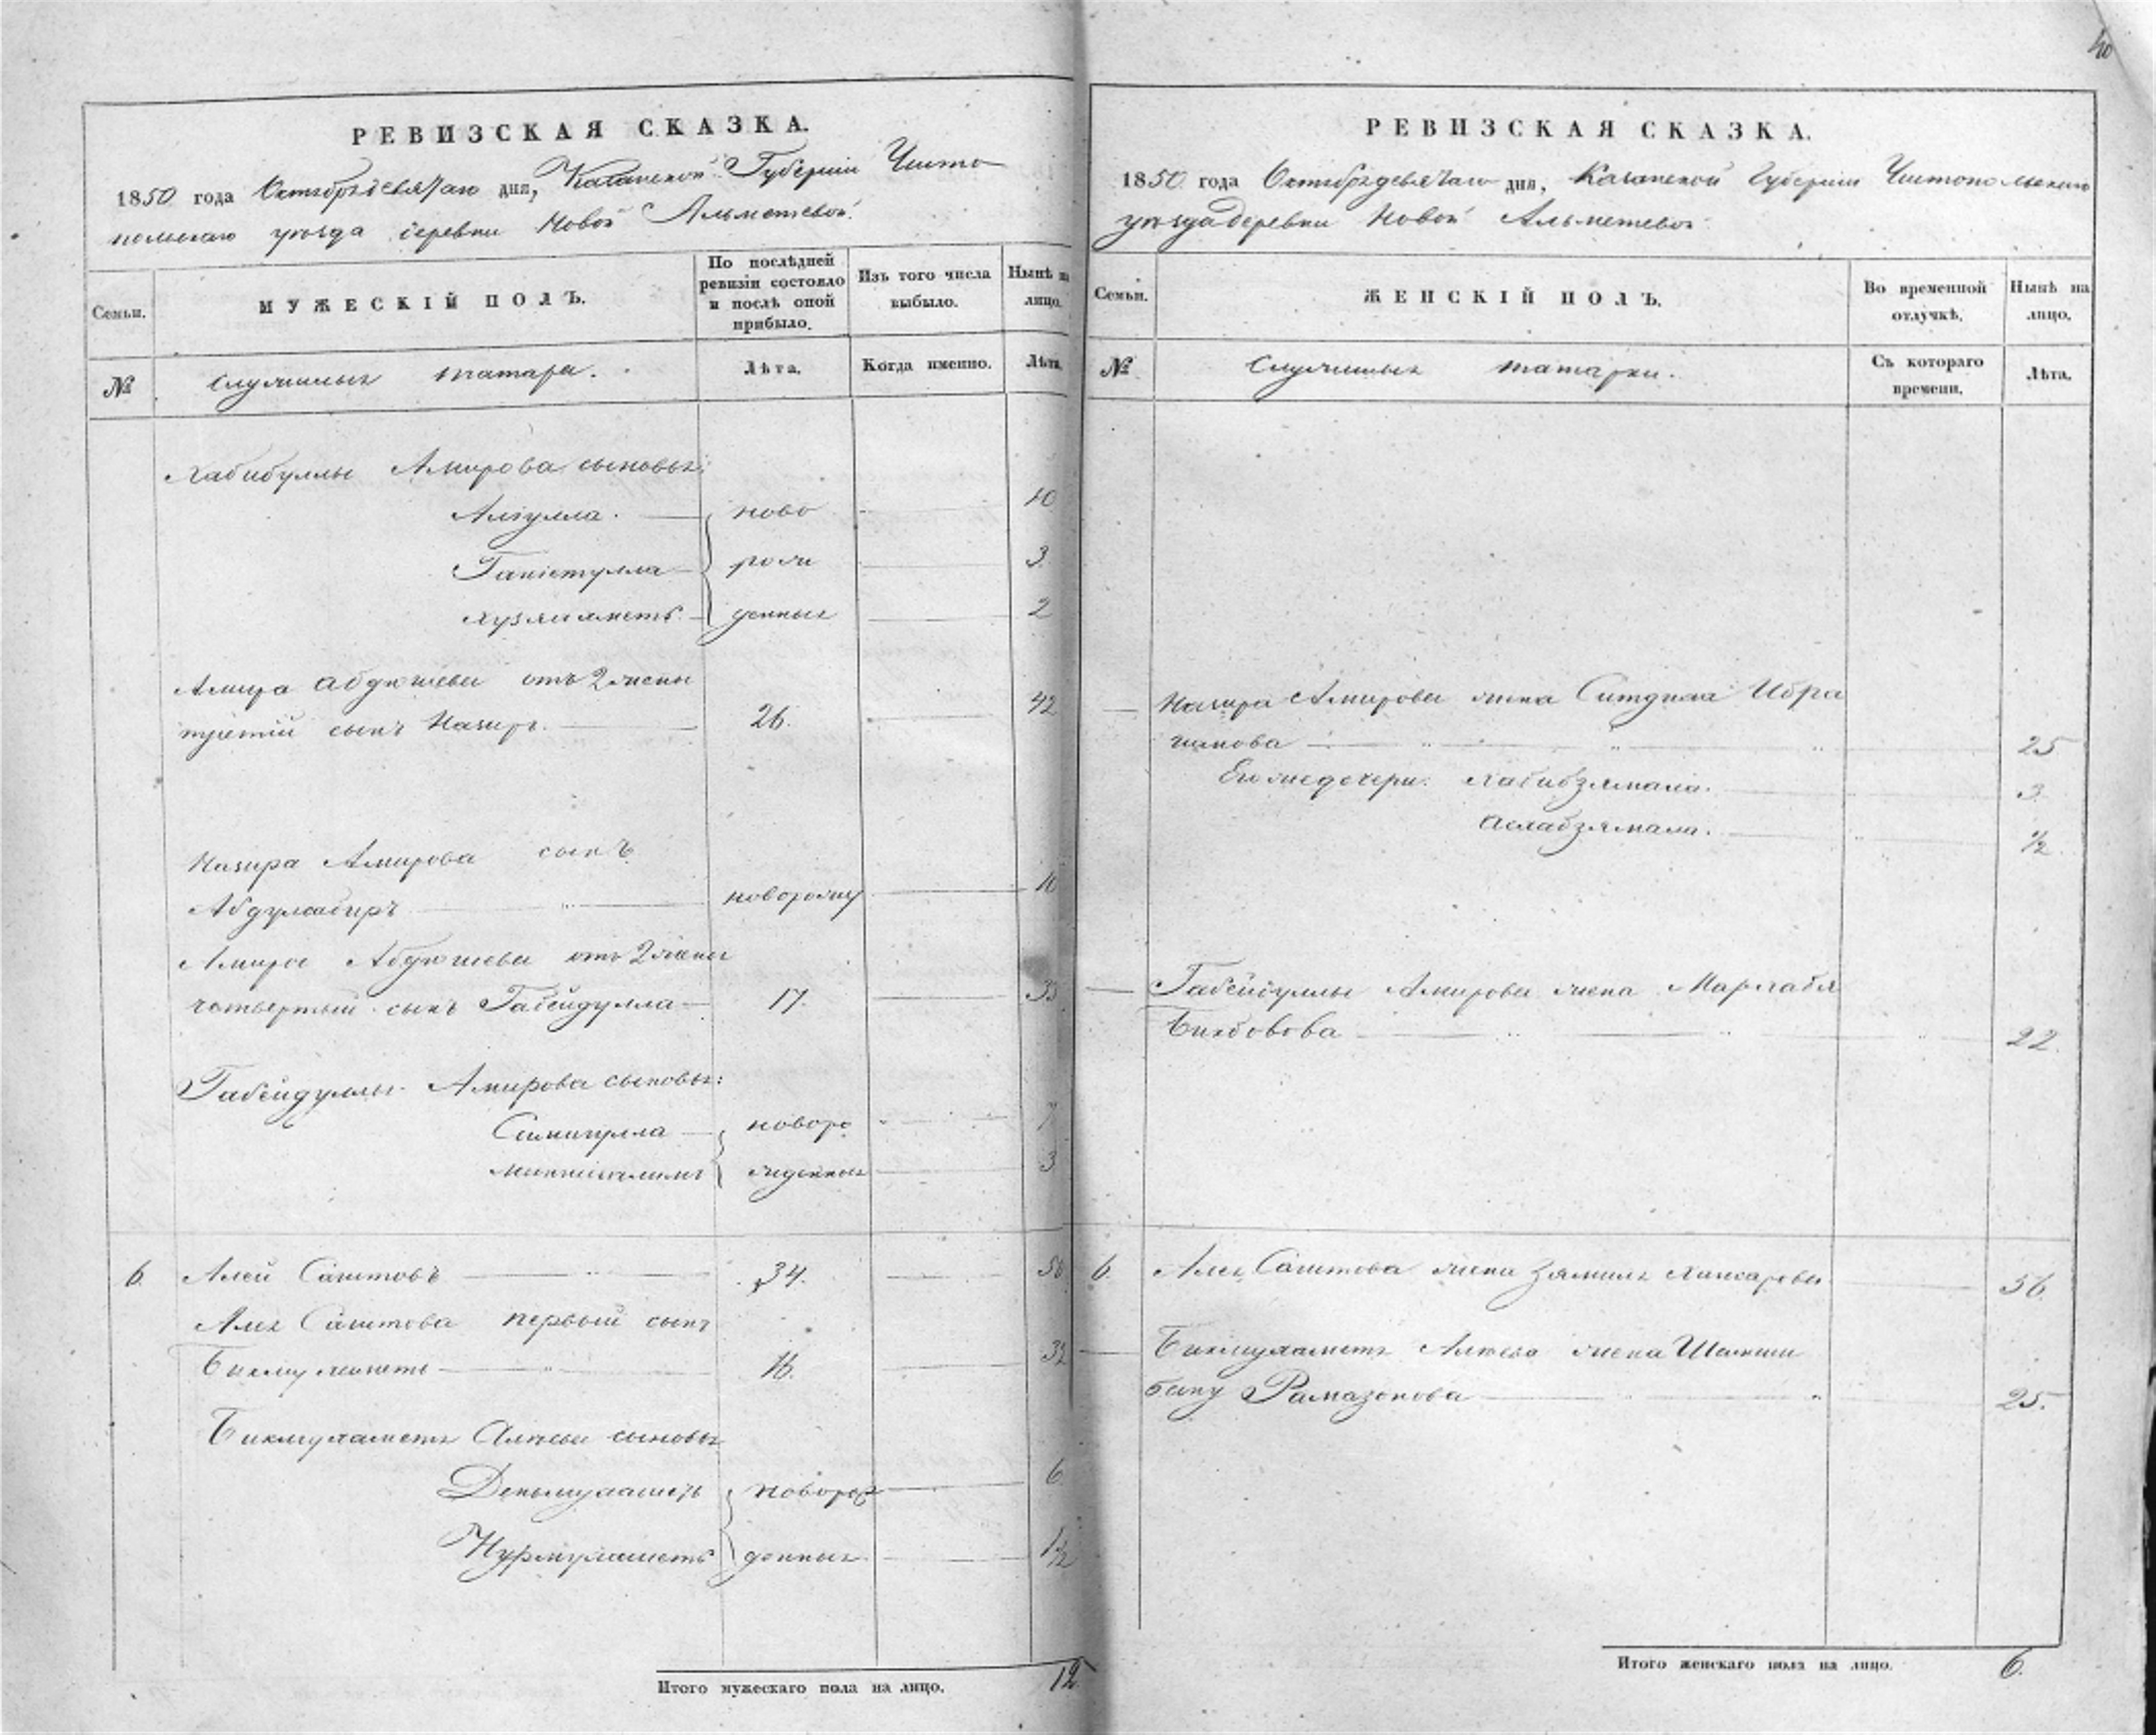 40
РЕВИЗСКАЯ СКАЗКА.
1850 года Октября девятаго дня, Казанской Губернии Чисто
польскаго уѣзда деревни Новой Альметевой.
Семьи.
МУЖЕСКІЙ ПОЛЪ.
По послѣдней ревизіи состояло и послѣ оной прибыло.
Изъ того числа выбыло.
Нынѣ на лицо.
№
служилыхъ татаръ.
Лѣта.
Когда именно.
Лѣта.
Хабибуллы Амирова сыновья:
Алгулла ново 10
рож 3
денныхъ 2
Амира Абдюшева отъ 2 жены
третій сынъ Назиръ. 26. 42
Назира Амирова сынъ
новорожд
Амира Абдюшева отъ 2 жены
четвертый сынъ Габейдулла 17. 33
Габейдуллы Амирова сыновья:
новоро 7
жденныхъ 3
6. Алей Саитовъ 34. 50
Алея Саитова первый сынъ
Бикмухаметъ 16. 32
Бикмухаметя Алѣева сыновья
новорож 6
Нурмухаметъ денныхъ 1½
Итого мужескаго пола на лицо. 12
РЕВИЗСКАЯ СКАЗКА.
1850 года Октября девятаго дня, Казанской Губерніи Чистопольскаго
уѣзда деревни Новой Альметевой
Семьи.
ЖЕНСКІЙ ПОЛЪ.
Во временной отлучкѣ.
Нынѣ на лицо.
№
Служилыхъ татарки.
Съ котораго времени.
Лѣта.
Назира Амирова жена Ситдика Ибра
гимова 25
Его же дочери: Хабибзямала. 3.
Аслабзямала. ½
Габейдуллы Амирова жена
22.
6. Алея Саитова жена 56
Бикмухаметя Алѣева жена Шамши
бану Рамазанова 25.
Итого женскаго пола на лицо. 6.